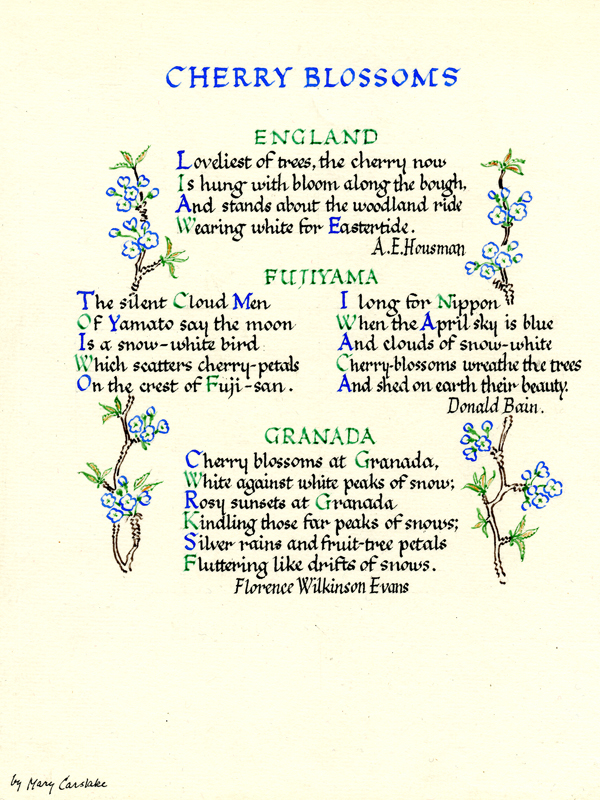 CHERRY BLOSSOMS
ENGLAND
Loveliest of trees, the cherry now
Is hung with bloom along the bough,
And stands about the woodland ride
Wearing white for Eastertide.
A.E.Housman
FUJIYAMA
The silent Cloud Men
Of Yamato say the moon
Is a snow-white bird
Which scatters cherry-petals
On the crest of Fuji-san.
I long for Nippon
When the April sky is blue
And clouds of snow-white
Cherry-blossoms wreathe the trees
And shed on earth their beauty.
Donald Bain.
GRANADA
Cherry blossoms at Granada,
White against white peaks of snow;
Rosy sunsets at Granada
Kindling those far peaks of snows;
Silver rains and fruit-tree petals
Fluttering like drifts of snows.
Florence Wilkinson Evans
by Mary Carslake